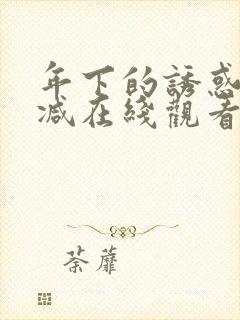 年下的誘惑
减在綫觀看
荼蘼